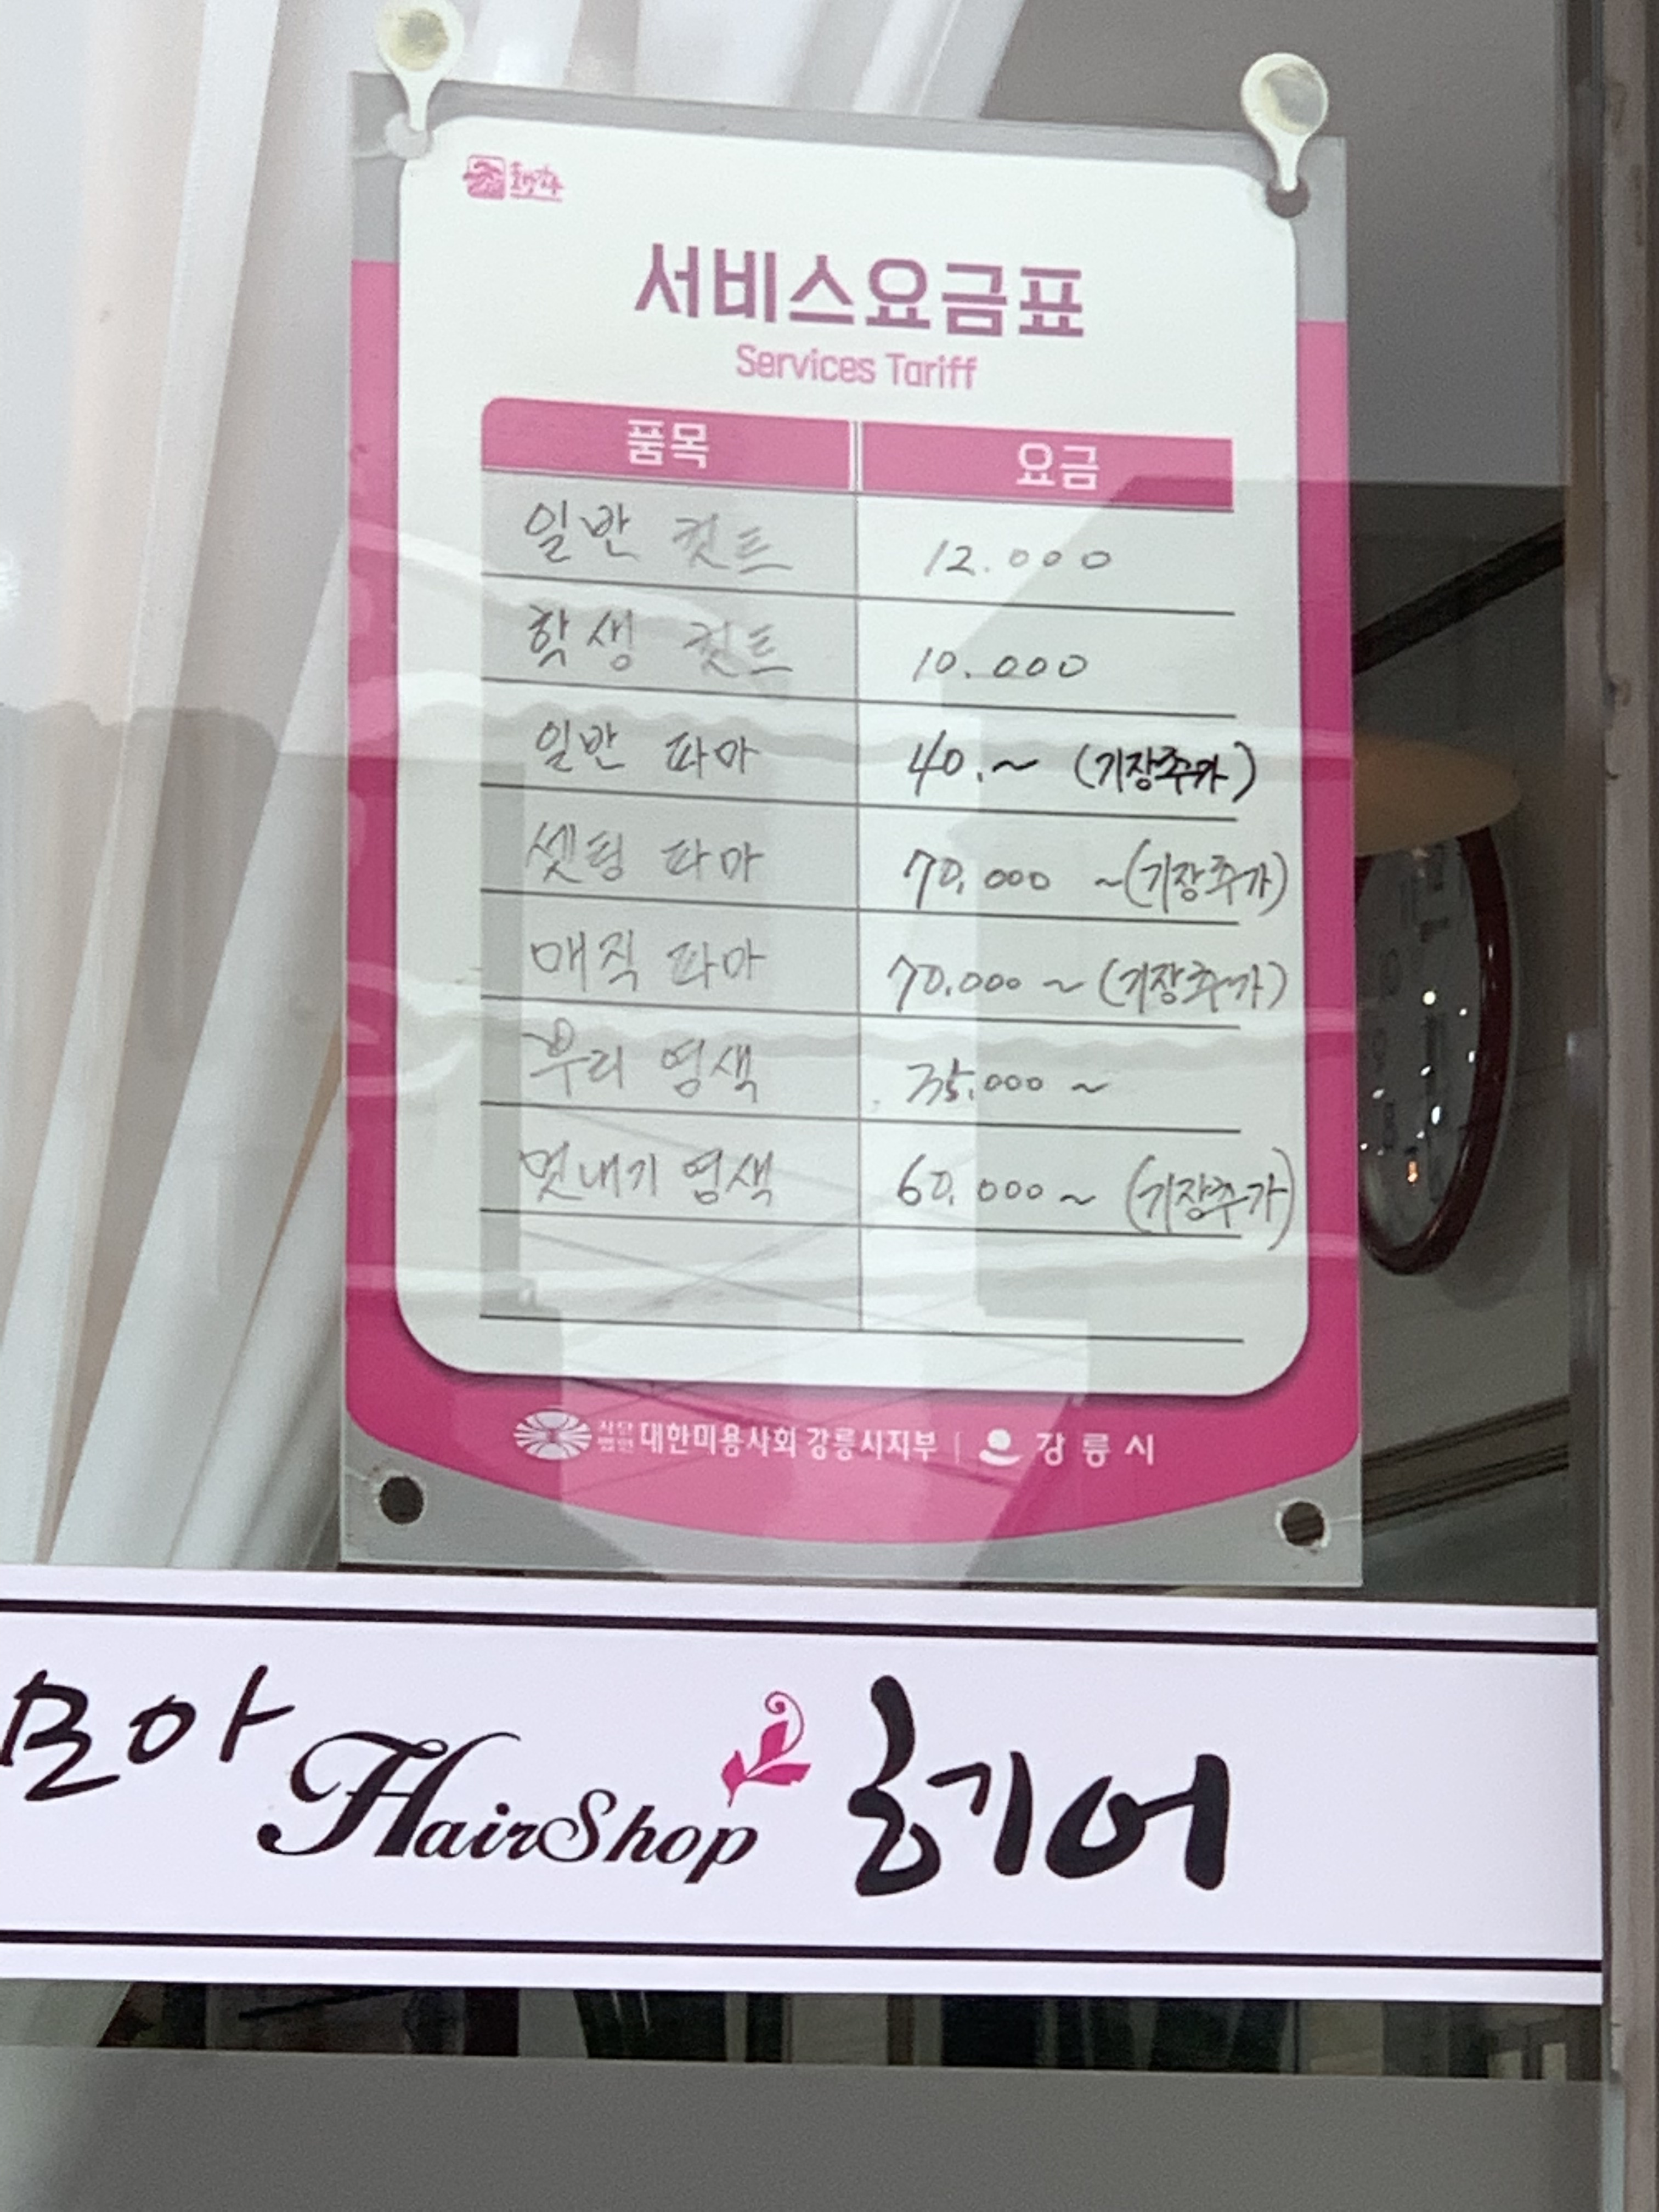 솔향강릉
서비스요금표
Services Tariff
품목 요금
일반 컷트 12.000
학생 컷트 10.000
일반 파마 40.~ (기장추가)
셋팅 파마 70.000 ~(기장추가)
매직 파마 70.000 ~ (기장추가)
뿌리 염색 35.000 ~
멋내기 염색 60.000 ~ (기장추가)
사단법인 대한미용사회 강릉시지부 | 강릉시
모아 HairShop 헤어